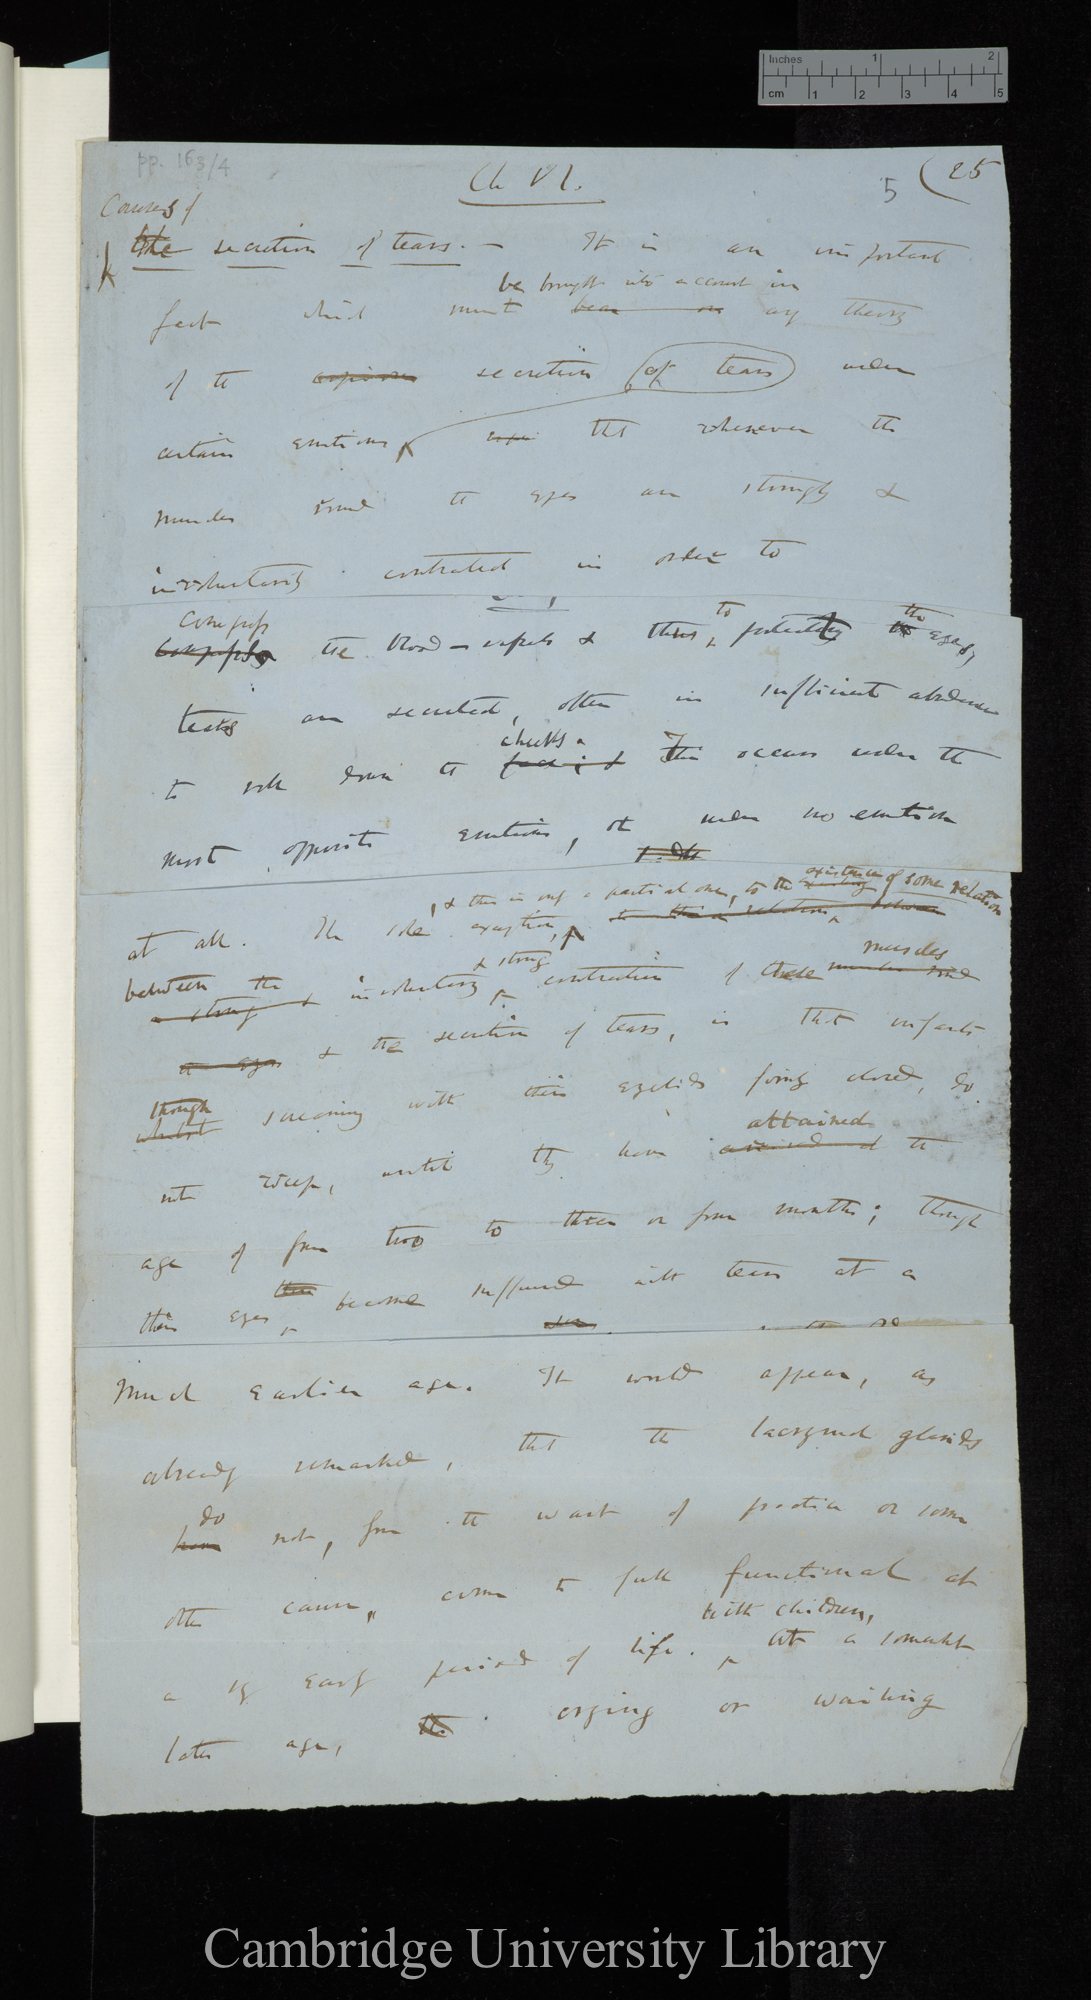 Inches 1 2
cm 1 2 3 4 5
pp. 163/4
Ch VI.
5
(25
Causes of
the secretion of tears. — It is an important
be brought into account in
fact which must bear on any theory
of the secretion of tears under
certain emotions, that whenever the
muscles round the eyes are strongly &
involuntarily contracted in order to
compress to the
the blood-vessels & thus protect eyes,
tears are secreted, often in sufficient abundance
cheeks.
to roll down the face; & This occurs under the
most opposite emotions, or under no emotion
, & this is only a partial one, to the existence of some relation
at all. The sole exception, to the relation between
between the & strong muscles
a strong & involuntary contraction of these muscles round
the eyes & the secretion of tears, is that infants
though
whilst screaming with their eyelids firmly closed, do
attained
not weep, until they have arrived at the
age of from two to three or four months; though
their eyes become suffused with tears at a
much earlier age. It would appear, as
already remarked, that the lacrymal glands
do
have not, from the want of practice or some
other cause, come to full functional at
with children,
a very early period of life. At a somewhat
later age, the crying or wailing
Cambridge University Library